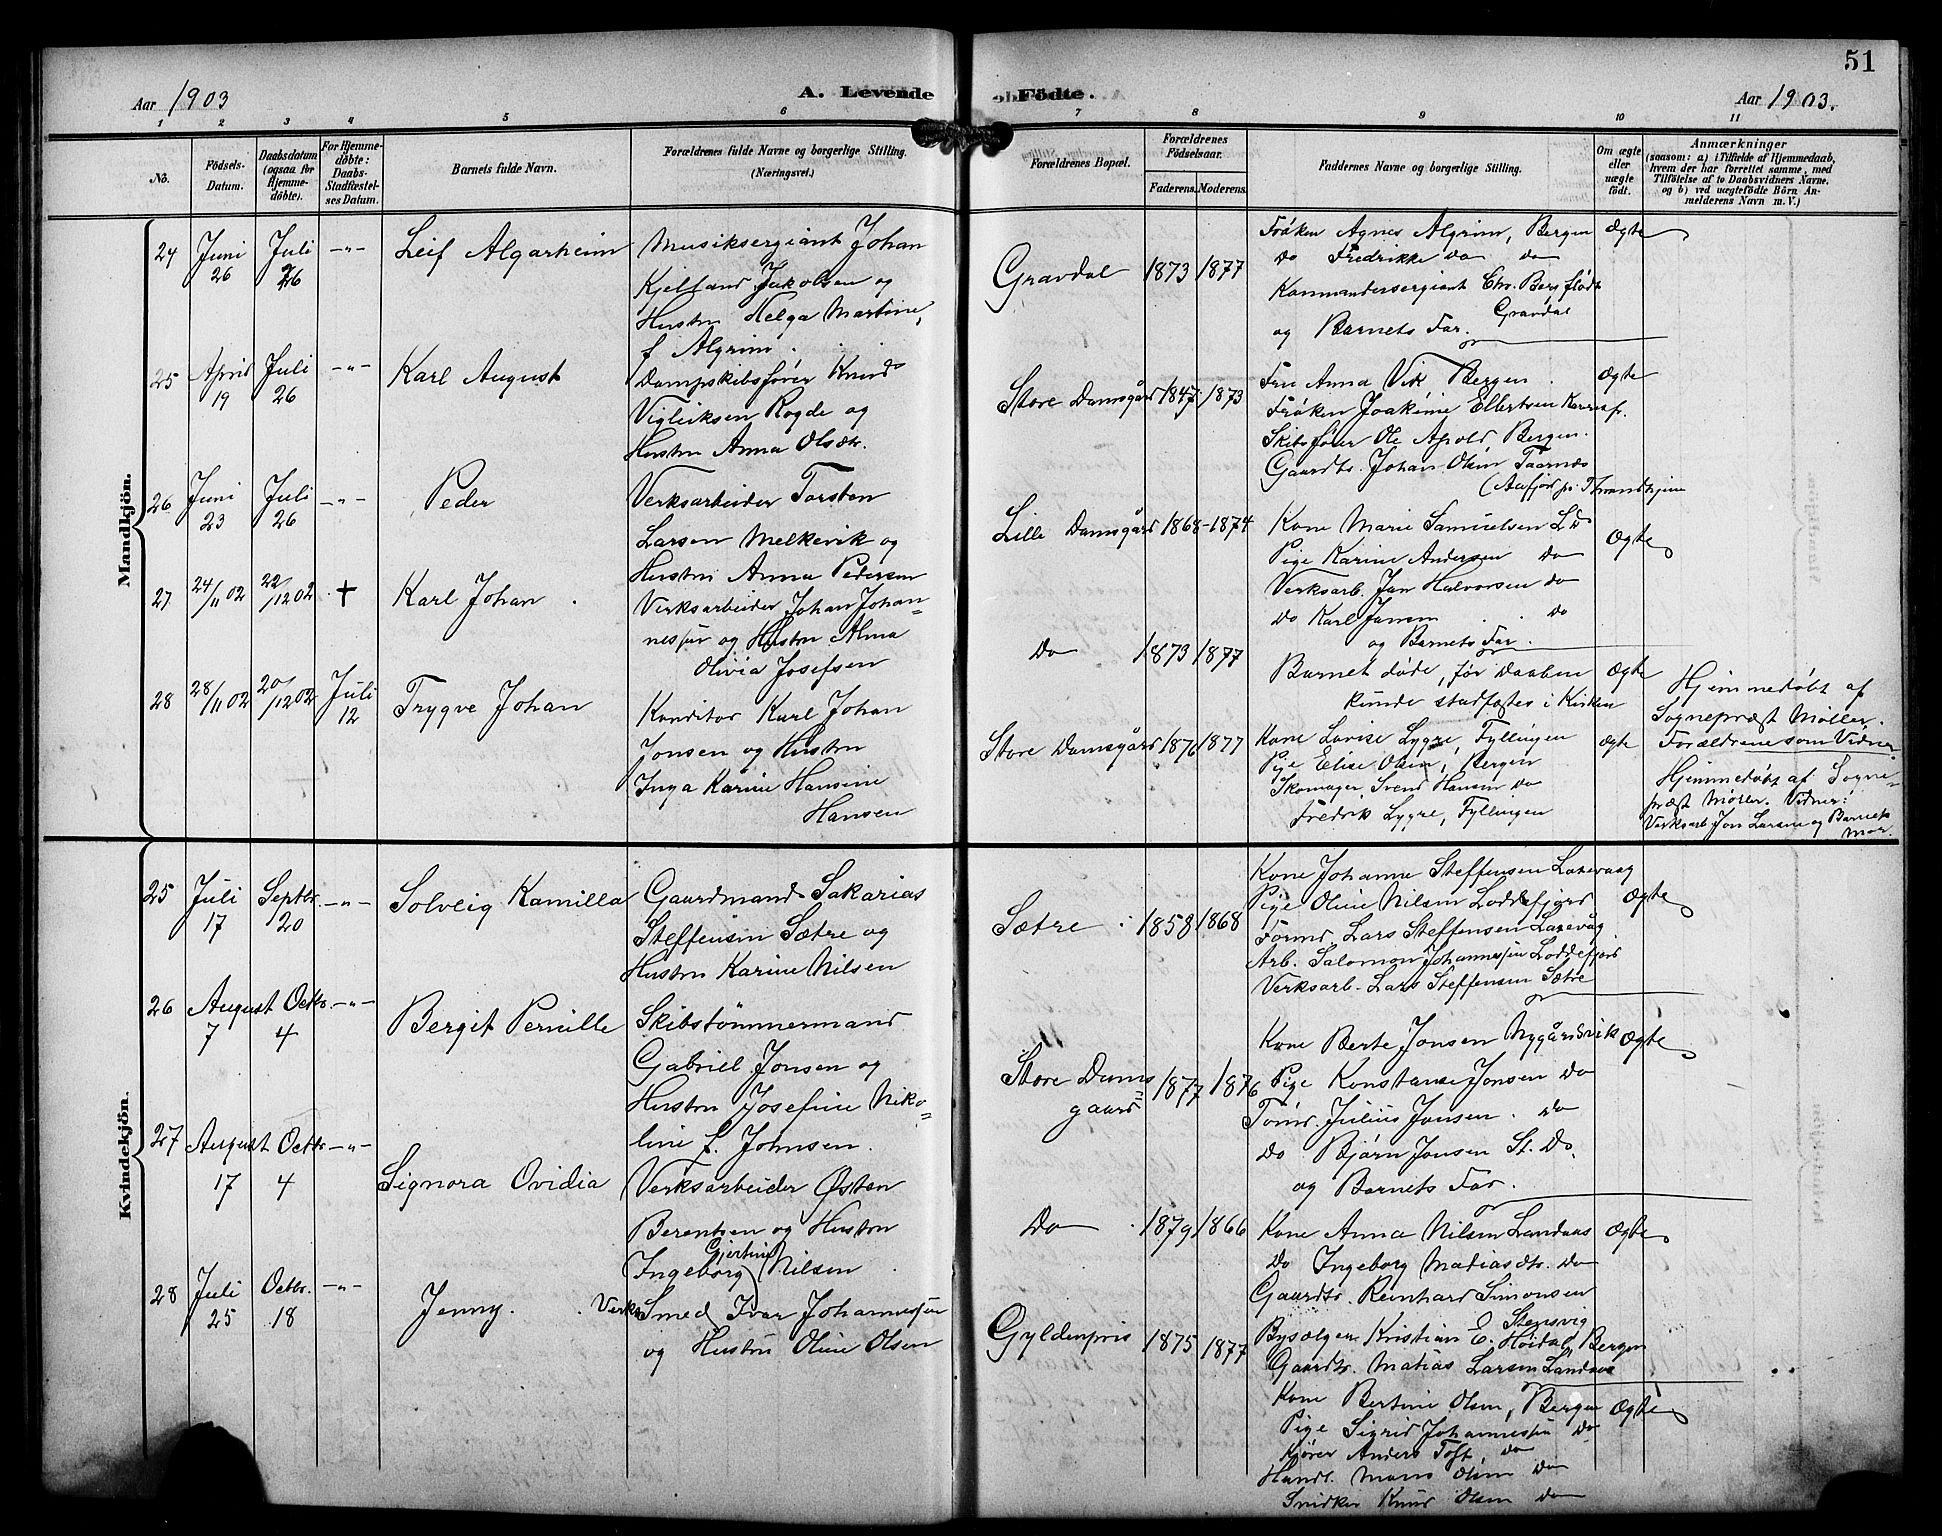 51
Aar 1903
A. Levende Födte.
Aar 1903.
1 2 3 4 5 6 7 8 9 10 11
No.
Födsels-
Datum.
Daabsdatum
(ogsaa for
Hjemme-
döbte).
For Hjemme-
döbte:
Daabs-
Stadfæstel-
ses Datum.
Barnets fulde Navn.
Forældrenes fulde Navne og borgerlige Stilling.
(Næringsvei.)
Forældrenes Bopæl.
Forældrenes
Födselsaar.
Faderens. Moderens.
Faddernes Navne og borgerlige Stilling.
Om ægte
eller
uægte
födt.
Anmærkninger
(saasom: a) i Tilfælde af Hjemmedaab,
hvem der har forrettet samme, med
Tilföielse af to Daabsvidners Navne,
og b) ved uægtefödte Börn An-
melderens Navn m. V.)
Mandkjön.
24 Juni 26 Juli 26 -"- Leif Algarheim
Musiksergiant Johan
Kjelland Jakobsen og
Hustru Helga Martine,
f. Algrim.
Gravdal 1873 1877
Frøken Agnes Algrim, Bergen
Do Fredrikke do do
Kommandersergiant Chr. Bergflødt
Gravdal
og Barnets Far.
Ægte
25 April 19 Juli 26 -"- Karl August
Dampskibsfører Knud
Vigleiksen Rogde og
Hustru Anna Olsdtr.
Store Damsgård 1847 1873
Fru Anna Vik Bergen.
Frøken Joakime Ellertsen
Skibsfører Ole Apold, Bergen.
Gaardbr. Johan Olsen Taarnæs
(Aafjord pr. Throndhjem
Ægte
26 Juni 23 Juli 26 -"- Peder
Verksarbeider Torsten
Larsen Melkevik og
Hustru Anna Pedersen
Lille Damsgård 1868-1874
Kone Marie Samuelsen L D
Pige Karine Andersen Do
Verksarb. Jan Halvorsen do
Do Karl Jansen do
og Barnets Far.
Ægte
27 24/11 02 22/12 02 † Karl Johan
Verksarbeider Johan Johan=
nessen og Hustru Alma
Olivia Josefsen
Do 1873 1877
Barnet døde, før Daaben
kunde stadfæstes i Kirken
Ægte
Hjemmedøbt af
Sogneprest Møller.
Forældrene som Vidner
28 28/11 02 20/12 02 Juli 12 Trygve Johan
Konditor Karl Johan
Jonsen og Hustru
Inga Karine Hansine
Hansen
Store Damsgård 1876 1877
Kone Lovise Lygre, Fyllingen
Pige Elise Olsen, Bergen
Skomager Svend Hansen Do
Fredrik Lygre, Fyllingen
Ægte
Hjemmedøbt af Sogne=
præst Møller. Vidner:
Verksarb. Jon Larsen og Barnets
Mor.
Kvindekjön.
25 Juli 17 Septbr. 20 -"- Solveig Kamilla
Gaardmand Sakarias
Steffensen Sætre og
Hustru Karine Nilsen
Sætre 1858 1868
Kone Johanne Steffensen Laxevaag
Pige Oline Nilsen Loddefjord
Formd. Lars Steffensen Laxevåg
Arb. Salomon Johannessen Loddefjord
Verksarb. Lars Steffensen Sætre
Ægte
26 August 7 Octbr. 4 -"- Bergit Pernille
Skibstømmermand
Gabriel Jonsen og
Hustru Josefine Niko=
line f. Johnsen.
Store Dams=
gaard 1877 1876
Kone Berte Jonsen Nygårdsvik
Pige Konstanse Jonsen Do
Tømd. Julius Jonsen. do
Do Bjørn Jonsen St. Do.
og Barnets Far.
Ægte
27 August 17 Octbr. 4 -"- Signora Ovidia
Verksarbeider Østen
Berentsen og Hustru
Ingeborg Gjertine Nilsen
Do 1879 1866
Kone Anna Nilsen Landaas
Do Ingeborg Matiasdtr. Do
Gaardbr. Reinhard Simonsen
Stensvig
Bysælger Kristian E. Høidal, Bergen
Gaardbr. Matias Larsen Landaas
Ægte
28 Juli 25 Octbr. 18 -"- Jenny.
Verks Smed Ivar Johannessen
og Hustru Oline Olsen
Gyldenpris 1875 1877
Kone Bertine Olsen, Bergen
Pige Sigrid Johannessen Do
Kjører Anders Toft, Do
Handl. Mons Olsen Do
Snidker Knud Olsen Do
Ægte